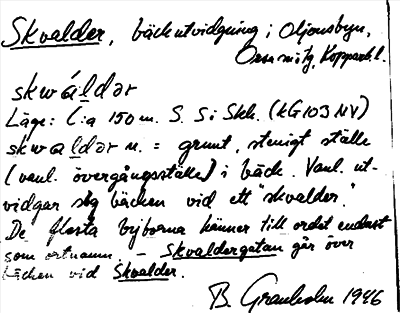 Skvalder, bäckutvidgning i Oljonsbyn,
Orsa sn o tg, Kopparb. l.
skwáldər
Läge: C:a 150 m. S. S i Skh. (KG103 NV)
skwaldər n. = grunt, stenigt ställe
(vanl. övergångsställe) i bäck. Vanl. ut-
vidgar sig bäcken vid ett "skvalder."
De flesta byborna känner till ordet endast
som ortnamn. – Skvaldergatan går över
bäcken vid Skvalder.
B. Granholm 1946